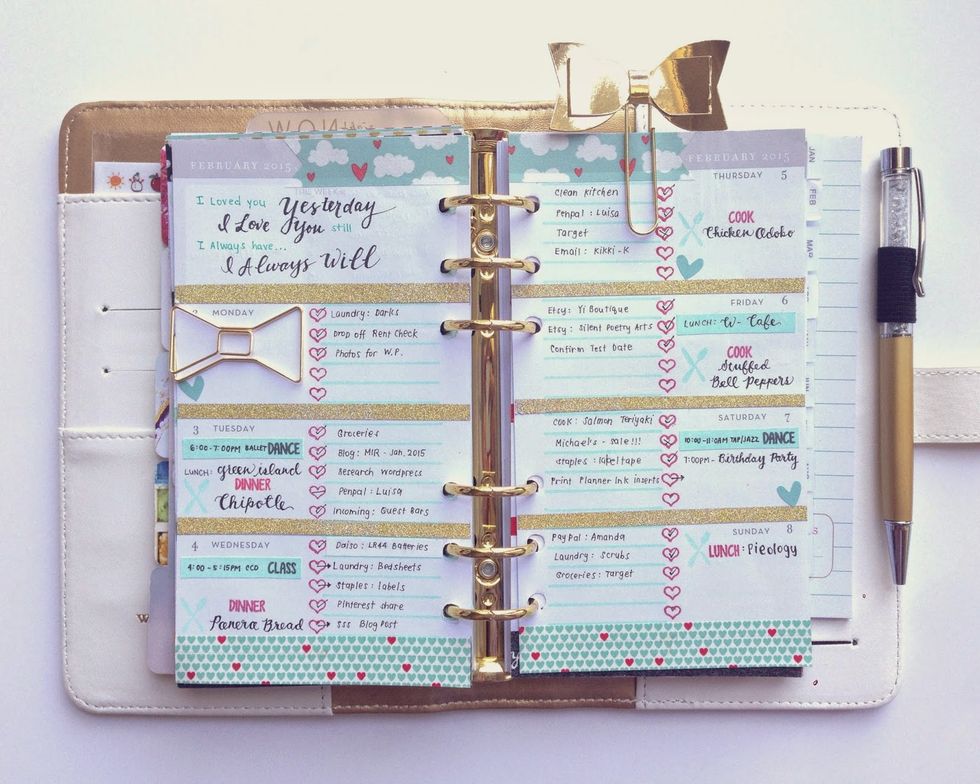 WON
FEBRUARY 2015
THIS WEEK
I Loved you Yesterday
I Love You still
I Always have...
I Always Will
MONDAY
Laundry: Darks
Drop off Rent Check
Photos for W.P.
3 TUESDAY
6:00-7:00PM BALLET DANCE
LUNCH: green island
DINNER
Chipotle
Groceries
Blog: MIR - Jan. 2015
Research Wordpress
Penpal: Luisa
Incoming: Guest Bars
4 WEDNESDAY
4:00-5:15PM CCD CLASS
DINNER
Panera Bread
Daiso: LR44 Batteries
Laundry: Bedsheets
Staples: labels
Pinterest share
SSS Blog Post
FEBRUARY 2015
THURSDAY 5
Clean Kitchen
Penpal: Luisa
Target
Email: Kikki-K
COOK
Chicken Adobo
FRIDAY 6
Etsy: Yi Boutique
Etsy: Silent Poetry Arts
Confirm Test Date
LUNCH: W- Cafe
COOK
Stuffed
Bell Peppers
SATURDAY 7
Cook: Salmon Teriyaki
Michael's - Sale!!!
Staples: label tape
Print Planner Ink inserts
10:00-11:00AM TAP/JAZZ DANCE
7:00PM- Birthday Party
SUNDAY 8
PayPal: Amanda
Laundry: Scrubs
Groceries: Target
LUNCH: Pieology
JAN
FEB
MAR